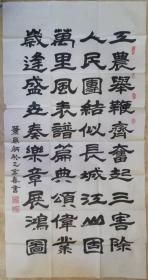 工農舉鞭齊奮起三害除
人民團結似長城江山固
萬里風表譜篇典頌偉業
歲逢盛世奏樂章展鴻圖
於乙亥春書